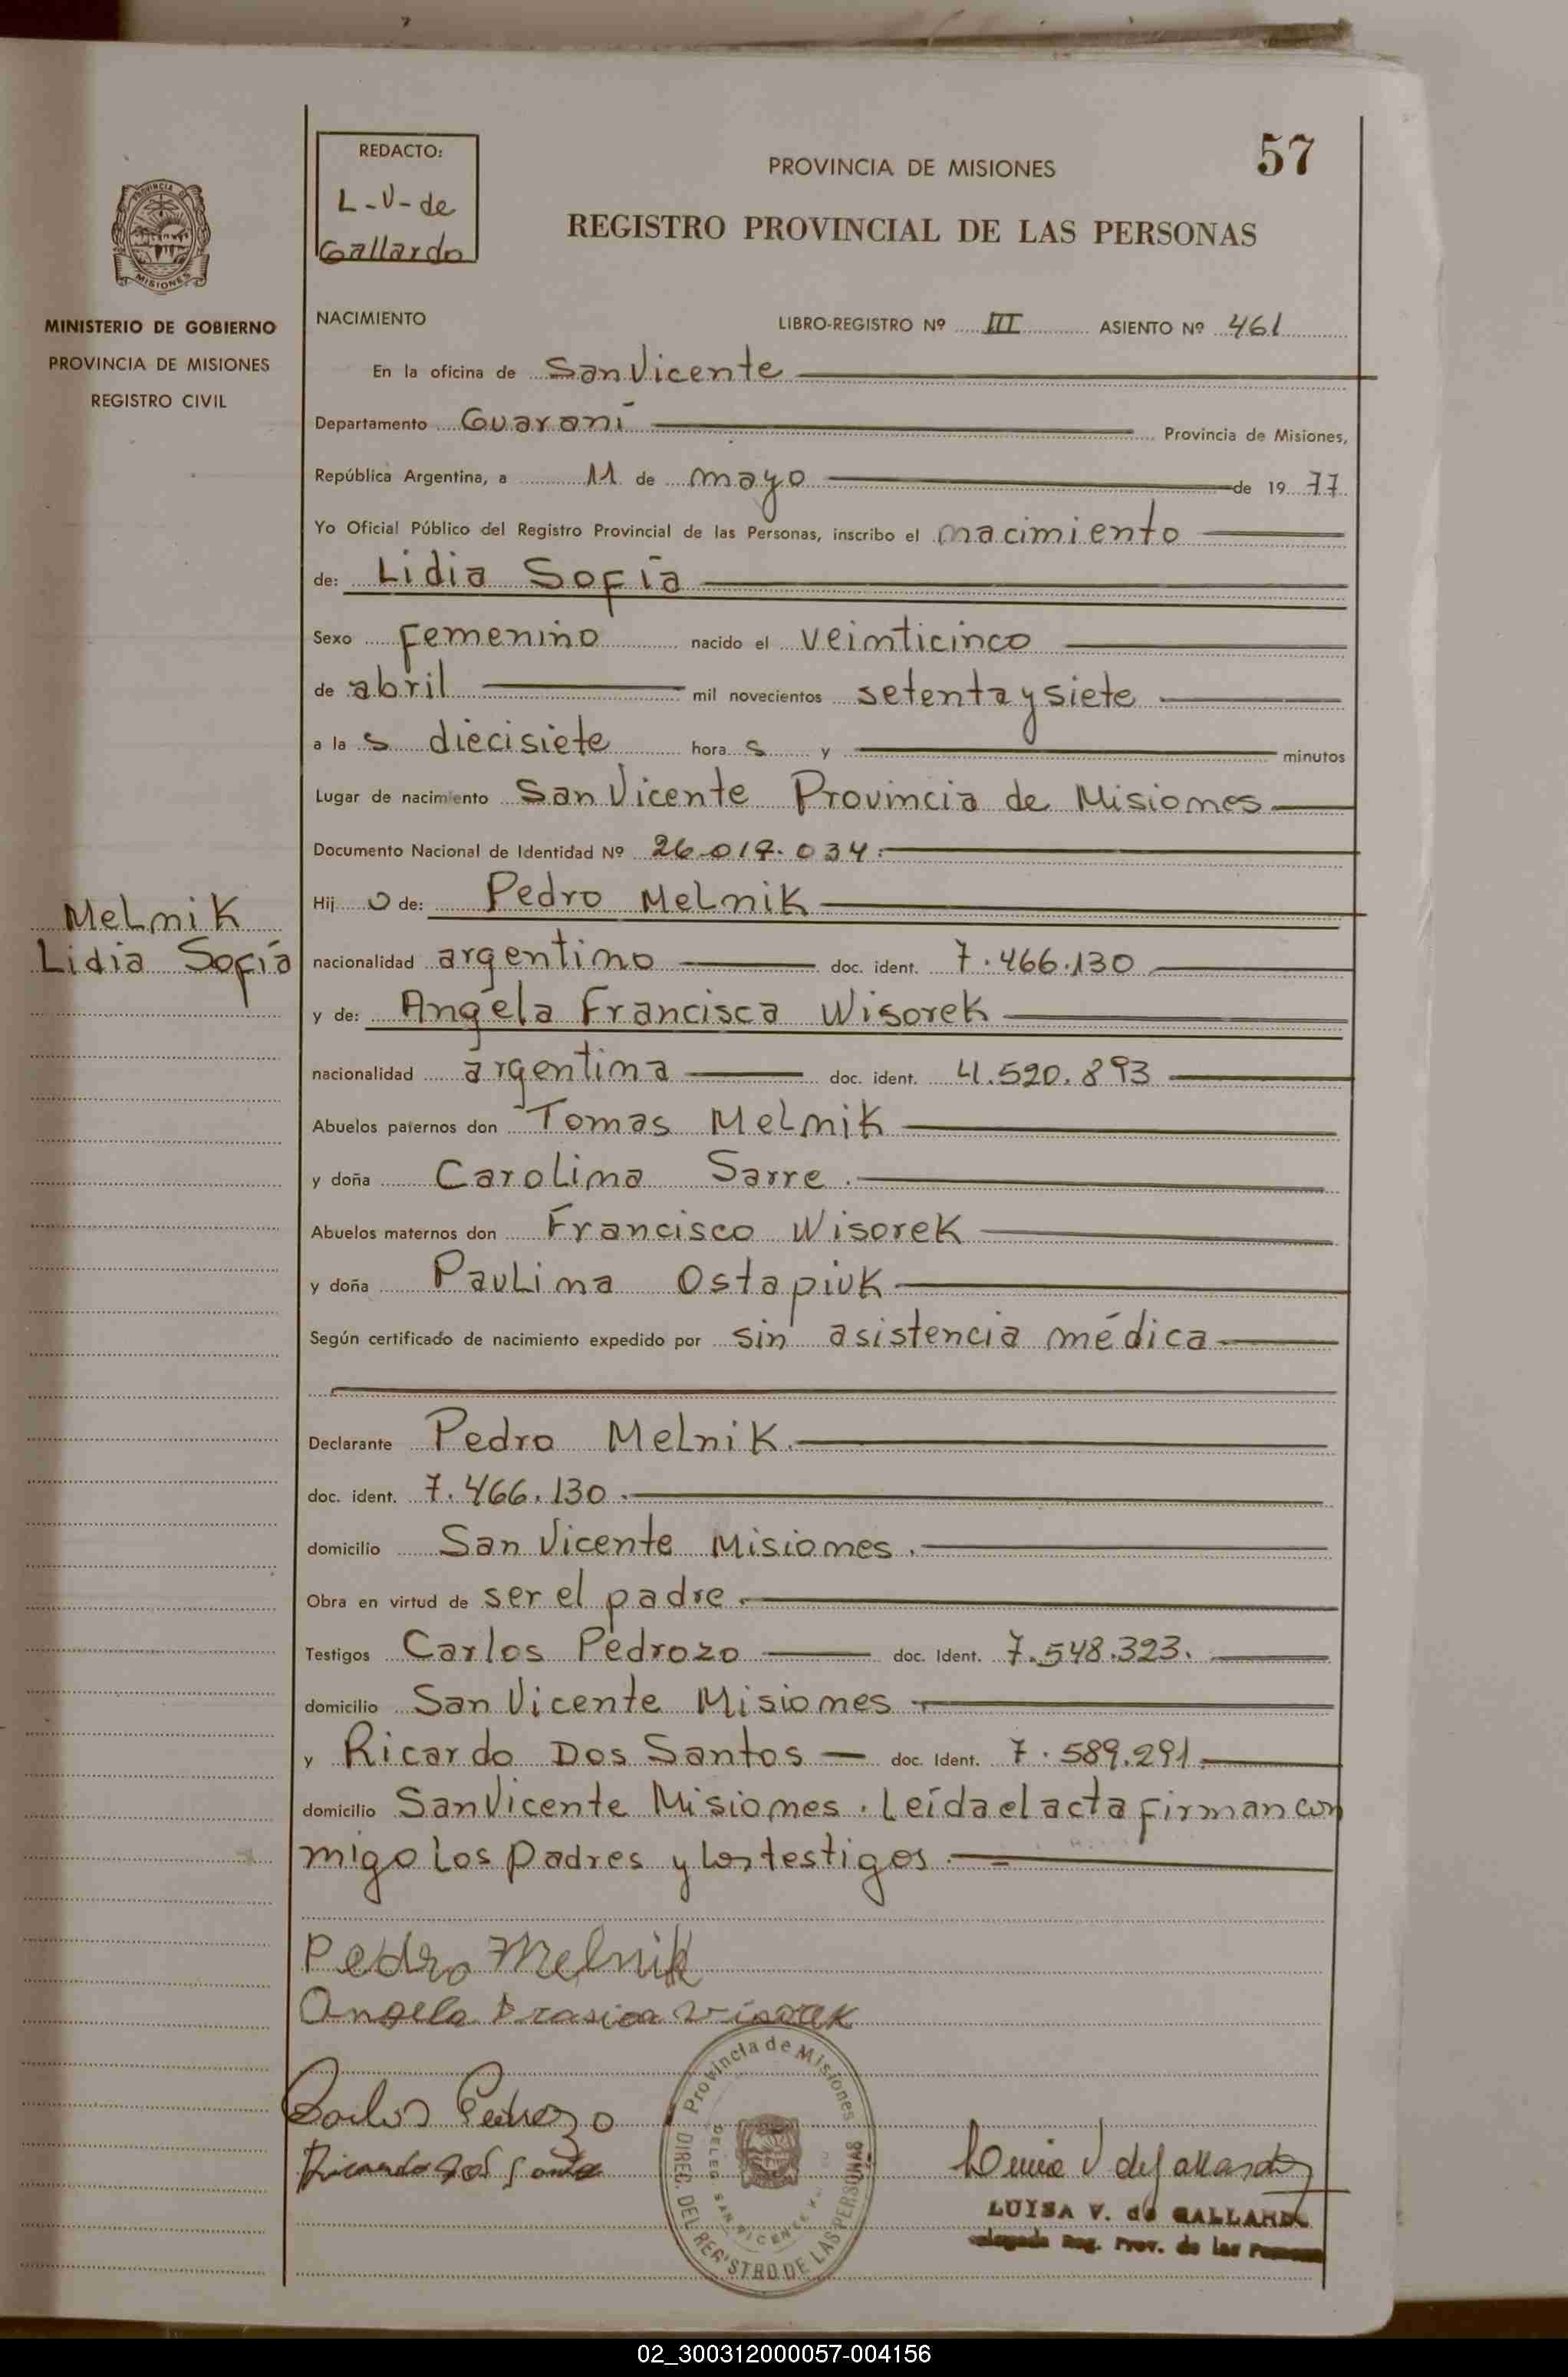 57
REDACTO:
L-V-de
Gallardo
PROVINCIA DE MISIONES
REGISTRO PROVINCIAL DE LAS PERSONAS
PROVINCIA DE
MISIONES
MINISTERIO DE GOBIERNO
PROVINCIA DE MISIONES
REGISTRO CIVIL
NACIMIENTO LIBRO-REGISTRO Nº III ASIENTO Nº 461
En la oficina de San Vicente
Departamento Guaraní Provincia de Misiones,
República Argentina, a 11 de mayo de 1977
Yo Oficial Público del Registro Provincial de las Personas, inscribo el nacimiento
de: Lidia Sofía
Sexo femenino nacido el veinticinco
de abril mil novecientos setenta y siete
a la s diecisiete hora s y minutos
Lugar de nacimiento San Vicente Provincia de Misiones
Documento Nacional de Identidad Nº 26.017.034.
Melnik
Lidia Sofía
Hij o de: Pedro Melnik
nacionalidad argentino doc. ident. 7.466.130
y de: Angela Francisca Wisorek
nacionalidad argentina doc. ident. 4.520.893
Abuelos paternos don Tomas Melnik
y doña Carolina Sarre.
Abuelos maternos don Francisco Wisorek
y doña Paulina Ostapiuk
Según certificado de nacimiento expedido por sin asistencia médica
Declarante Pedro Melnik.
doc. ident. 7.466.130.
domicilio San Vicente Misiones.
Obra en virtud de ser el padre.
Testigos Carlos Pedrozo doc. Ident. 7.548.323.
domicilio San Vicente Misiones
y Ricardo Dos Santos doc. Ident. 7.589.291.
domicilio San Vicente Misiones. Leída el acta firman con
migo los padres y los testigos.
Pedro Melnik
Angela Frasica Visorek
Carlos Pedrozo
Ricardo Dos Santo
Provincia de Misiones
DIREC. DEL REGISTRO DE LAS PERSONAS
DELEG. SAN VICENTE
Luisa V de Gallardo
LUISA V. de GALLARDO
Delegada Reg. Prov. de las Personas
02_300312000057-004156